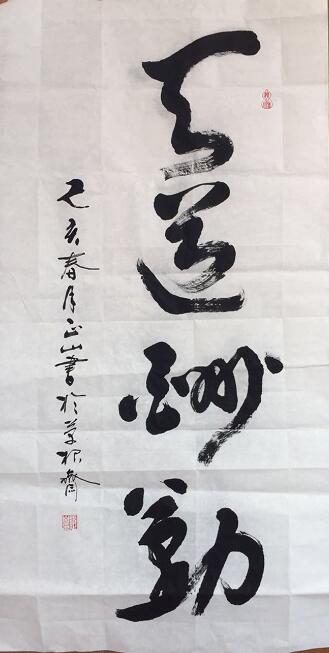 天道酬勤
己亥春月正山書於草根齋